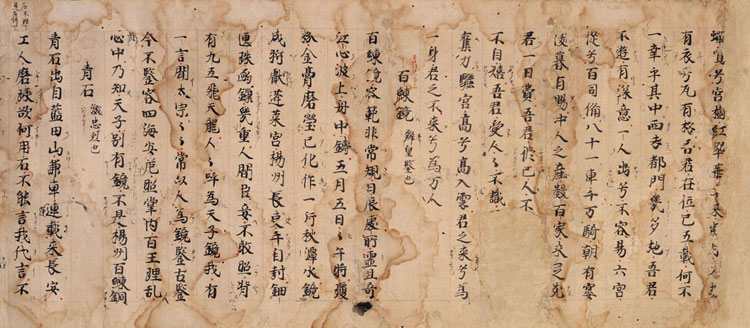 蟬鳴兮宮樹紅翠華不来歳月久
有衣兮瓦有松吾君在位已五載何不
一幸乎其中西去都門幾多地吾君
不遊有深意一人出兮不容易六宮
從兮百司備八十一車千万騎朝有宴
飫暮有賜中人之産數百家未足充
君一日費吾君修已人不
不自吾君愛人々不識
驪宮高兮高入雲君之来兮為
一身君之不来兮為万人
百練鏡 辨皇鑒也
百練鏡容範非常規日辰處所靈且奇
江心波上舟中鋳五月五日々午時瓊
粉金膏磨瑩已化作一片秋潭水鏡
成將獻蓬莱宮揚州長吏手自封鈿
匣珠函鏁幾重人間臣妾不敢照背
有九五飛天龍人々呼為天子鏡我有
一言聞太宗々々常以人為鏡鑒古鑒
今不鑒容四海安危照掌内百王理乱
心中乃知天子別有鏡不是揚州百練銅
青石 激忠烈也
青石出自藍田山兼車運載来長安
工人磨琢欲何用石不能言我代言不